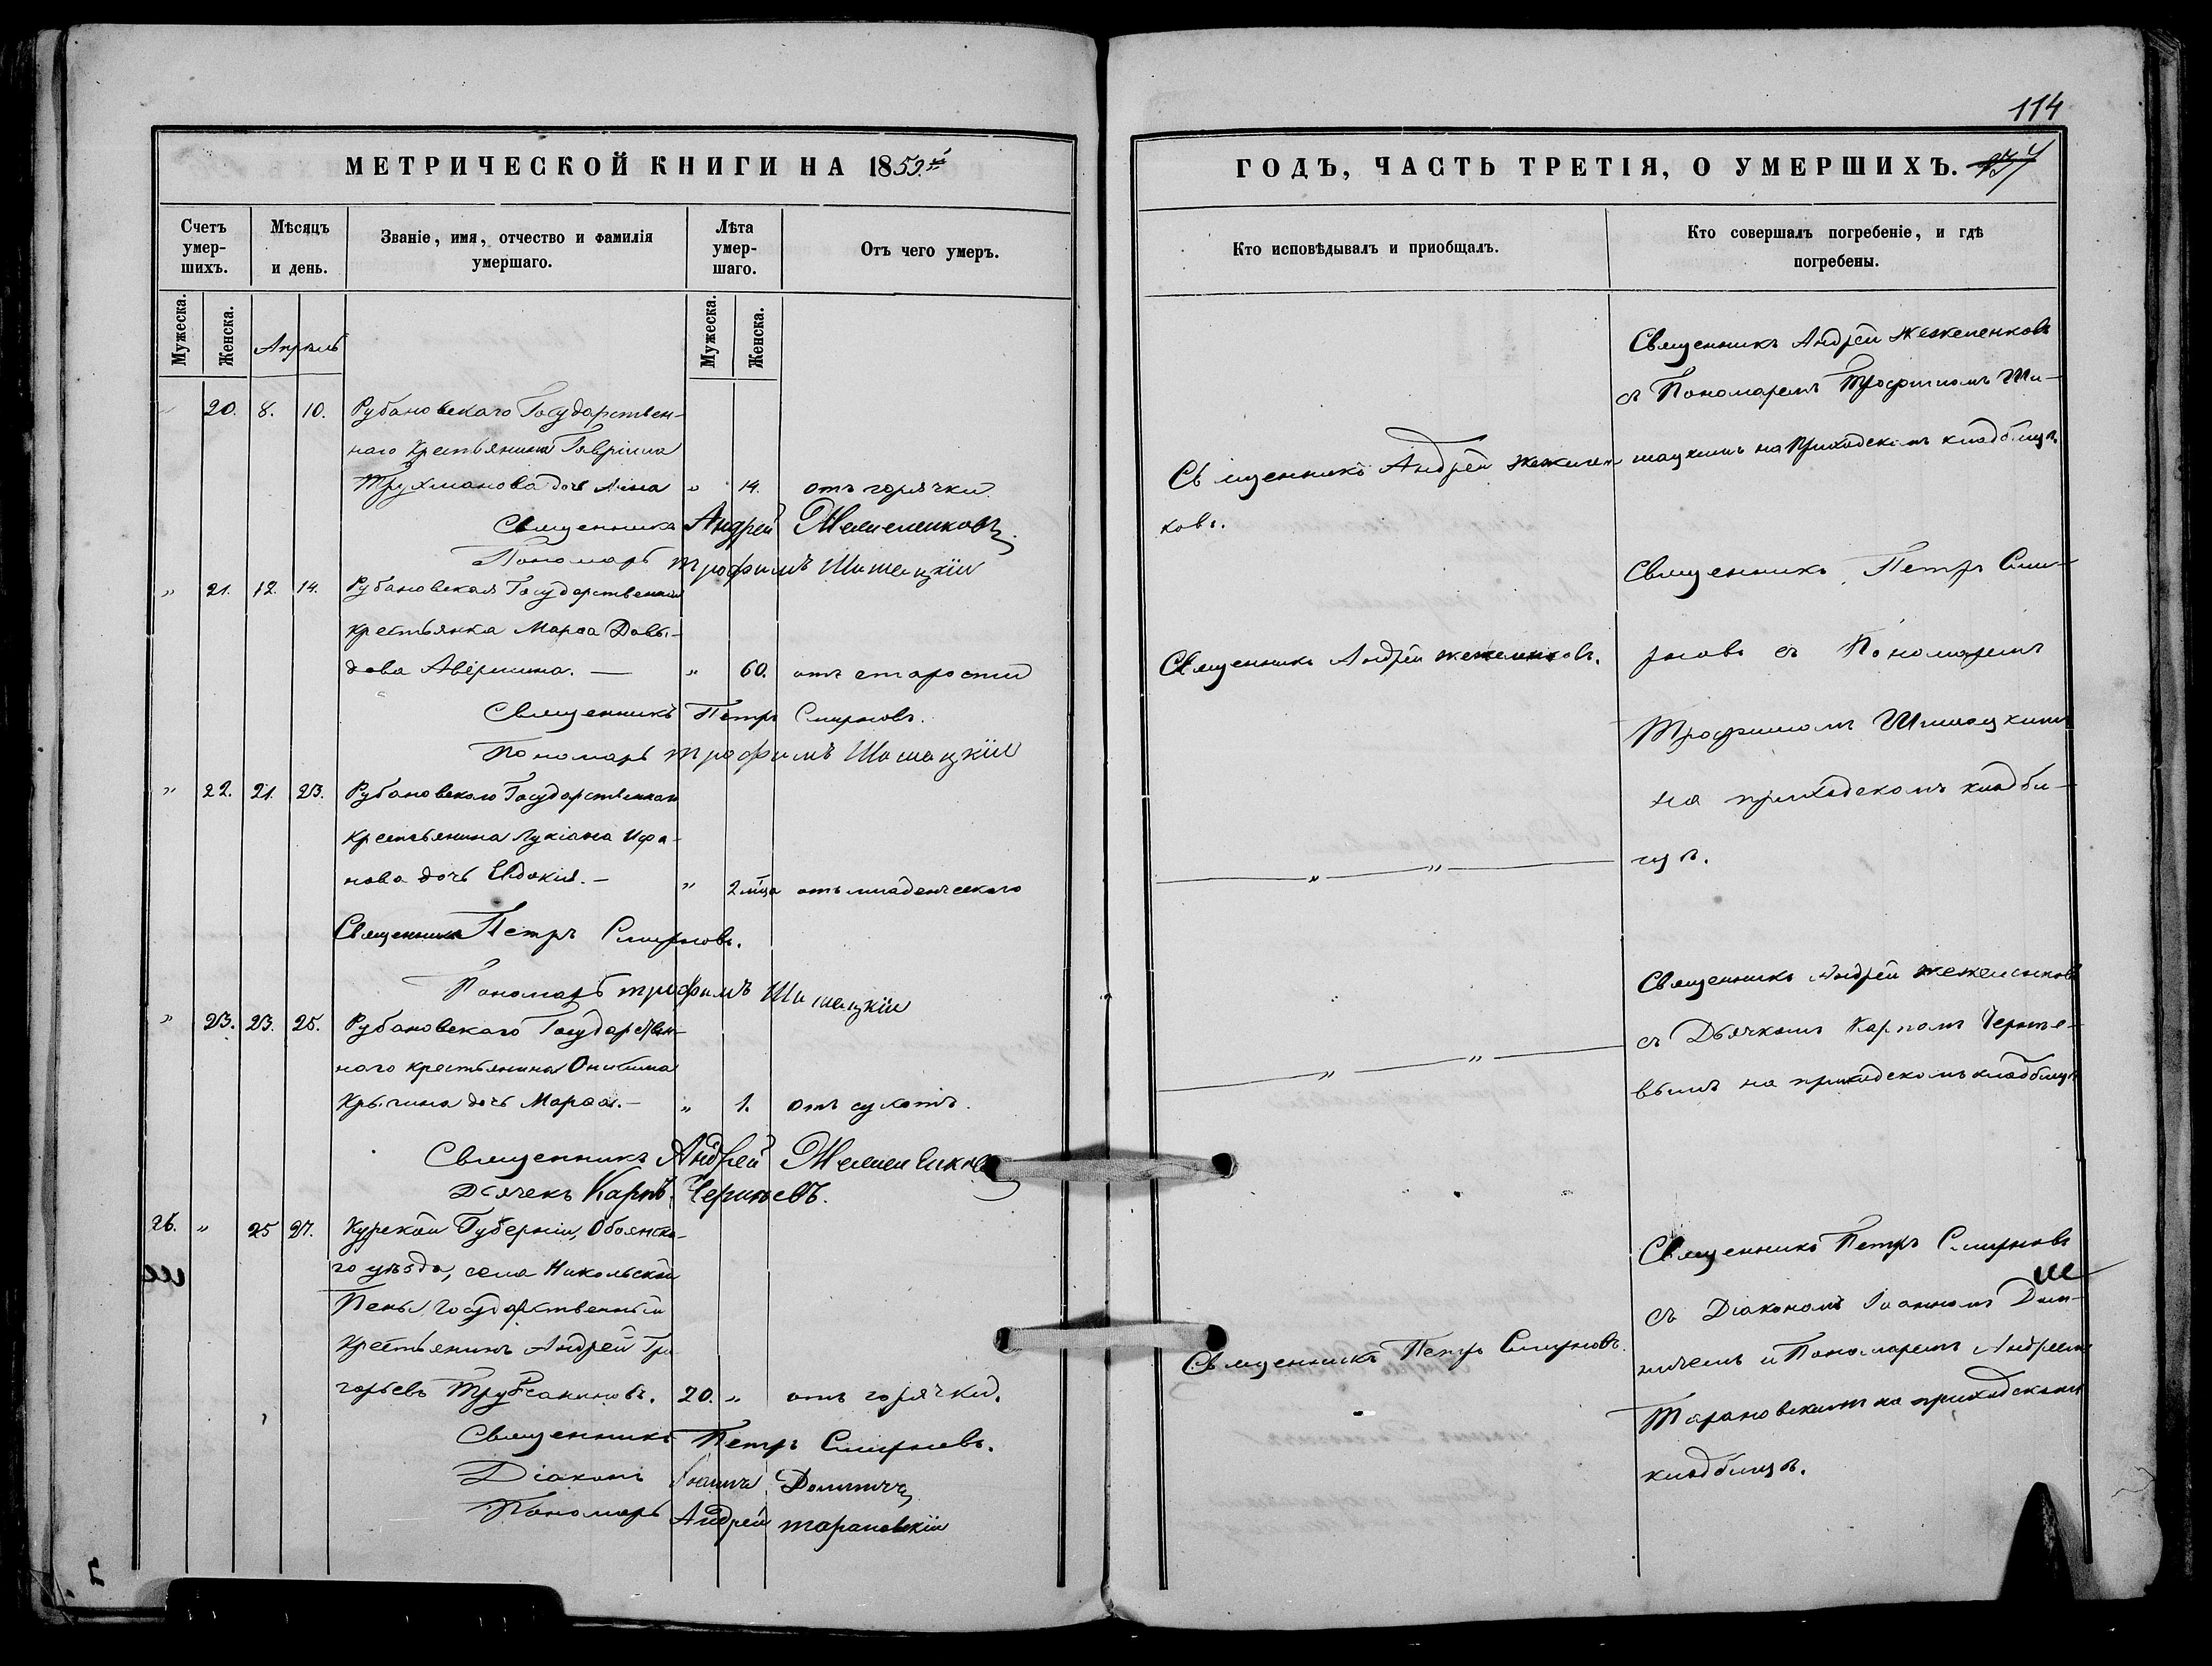 114
МЕТРИЧЕСКОЙ КНИГИ НА 1859.й
ГОДЪ, ЧАСТЬ ТРЕТІЯ, О УМЕРШИХЪ.
Счетъ умер-шихъ.
Мѣсяцъ и день.
Званіе, имя, отчество и фамилія умершаго.
Лѣта умер-шаго.
Отъ чего умеръ.
Мужеска.
Женска.
Апрель
Мужеска.
Женска.
20. 8. 10. Рубановскаго Государствен-
наго Крестьянина Гавріила
Трухманова дочь Анна " 14. отъ горячки.
Священникъ Андрей Жежеленковъ
Пономарь Трофимъ Шишацкій
" 21. 12. 14. Рубановская Государственная
крестьянка Марѳа Давы-
дова Авершина. — " 60. отъ старости
Священникъ Петръ Смирновъ.
Пономарь Трофимъ Шишацкій
" 22. 21. 23. Рубановскаго Государственнаго
Крестьянина Лукіана
нова дочь Евдокія. — " 2 мѣца отъ младенческаго
Священникъ Петръ Смирновъ.
Пономарь Трофимъ Шишацкій
" 23. 23. 25. Рубановскаго Государствен-
наго крестьянина Онисима
Крычина дочь Марѳа. — " 1. отъ сухотъ.
Священникъ Андрей Жежеленковъ
Дьячекъ Карпъ Черняевъ.
26. " 25 27. Курской Губерніи, Обоянска-
го уѣзда, села Никольской
Пены государственный
Крестьянинъ Андрей Гри
горьевъ 20. " отъ горячки.
Священникъ Петръ Смирновъ.
Діаконъ Іоаннъ
Пономарь Андрей Тарановскій
Кто исповѣдывалъ и пріобщалъ.
Кто совершалъ погребеніе, и гдѣ погребены.
Священникъ Андрей Жежелен-
ковъ.
Священникъ Андрей Жежеленковъ.
" "
" "
Священникъ Петръ Смирновъ.
Священникъ Андрей Жежеленковъ
съ Пономаремъ Трофимомъ Ши-
шацкимъ на Приходскомъ кладбищѣ.
Священникъ Петръ Сми-
рновъ съ Пономаремъ
Трофимомъ Шишацкимъ
на приходскомъ кладби-
щѣ.
Священникъ Андрей Жежеленковъ
съ Дьячкомъ Карпомъ Черняе-
вымъ на приходскомъ кладбищѣ
Священникъ Петръ Смирновъ
съ Діакономъ Іоанномъ
и Пономаремъ Андреемъ
Тарановскимъ на приходскомъ
кладбищѣ.